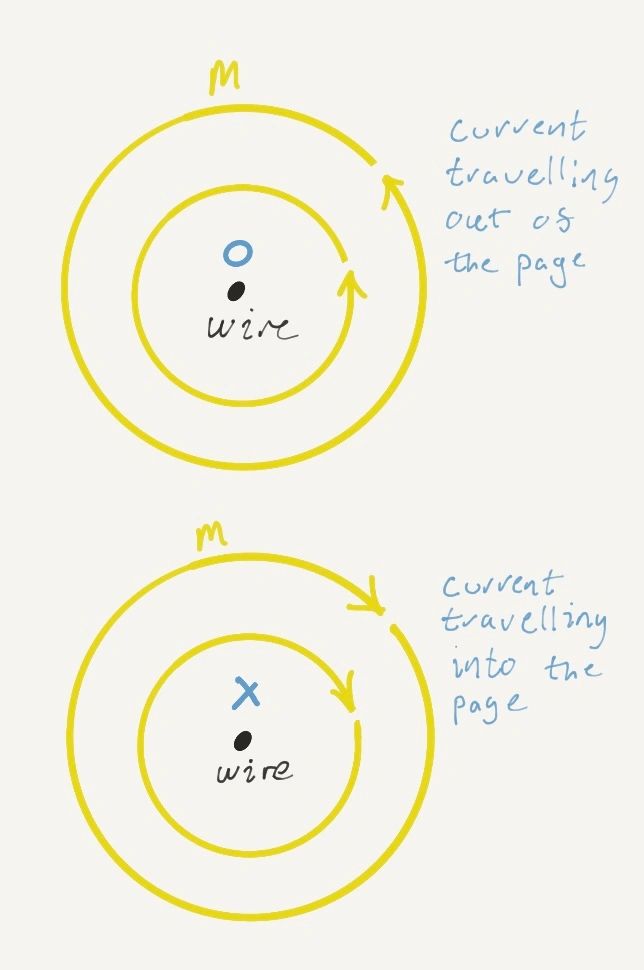 M
current
travelling
out of
the page
O
wire
M
current
travelling
into the
page
X
wire